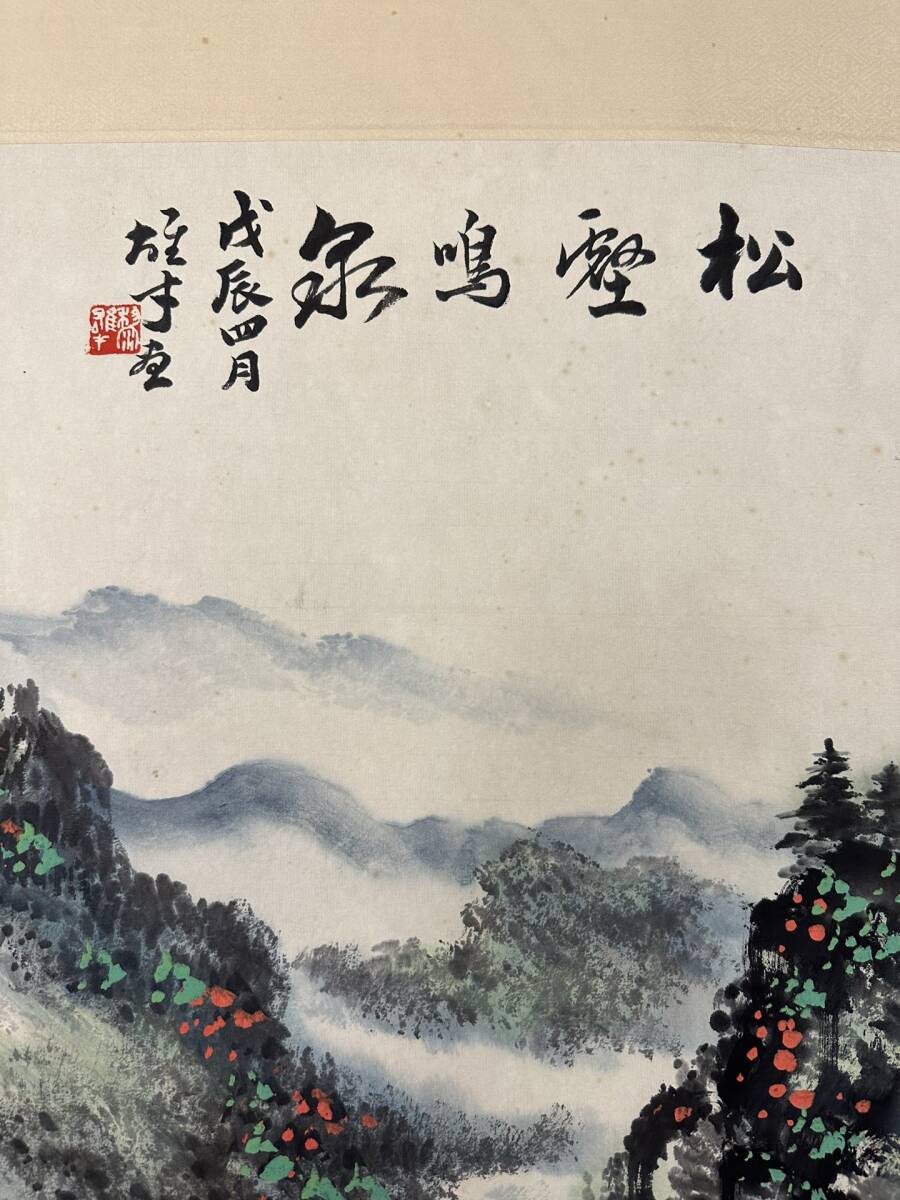 松壑鳴泉
戊辰四月
雄才画
黎雄才